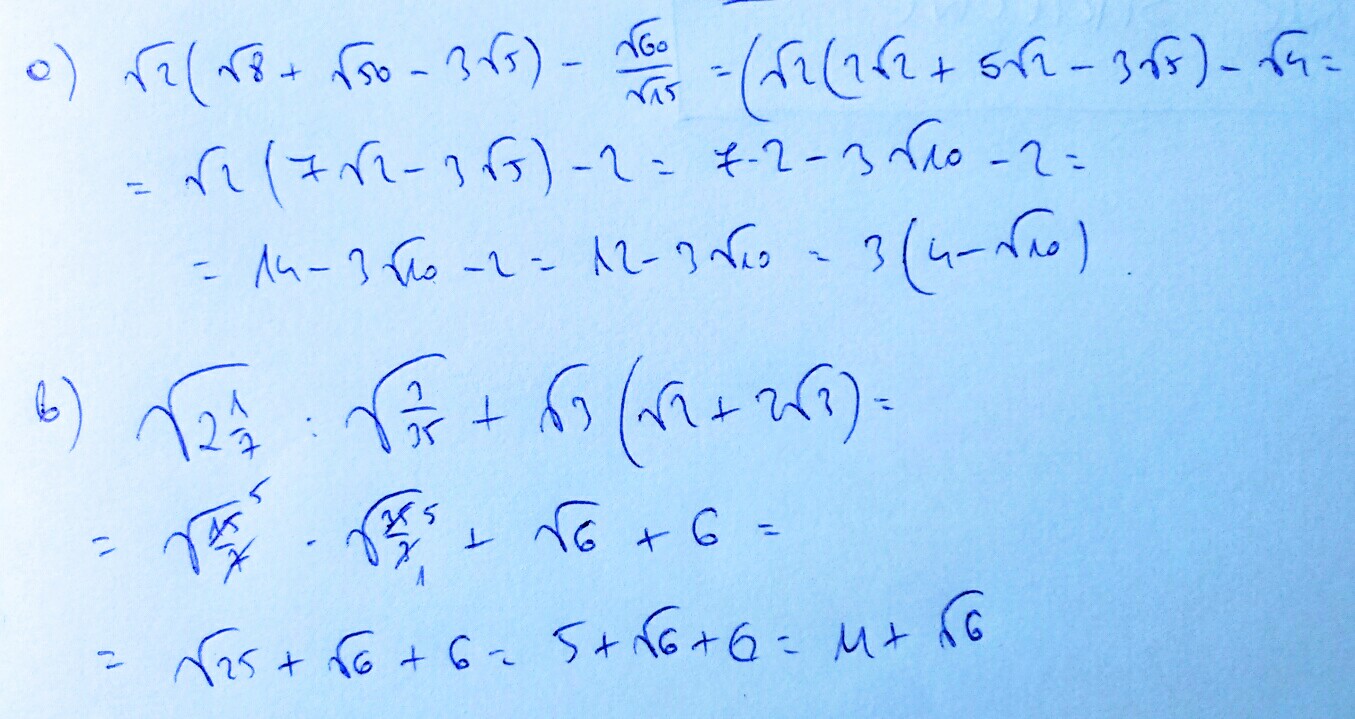 a) √2(√8 + √50 - 3√5) - √60/√15 = (√2(2√2 + 5√2 - 3√5) - √4 =
= √2(7√2 - 3√5) - 2 = 7·2 - 3√10 - 2 =
= 14 - 3√10 - 2 = 12 - 3√10 = 3(4 - √10)
b) √(2 1/7) : √(3/35) + √3(√2 + 2√3) =
= √(15/7) 5 · √(35/3) 5 1 + √6 + 6 =
= √25 + √6 + 6 = 5 + √6 + 6 = 11 + √6